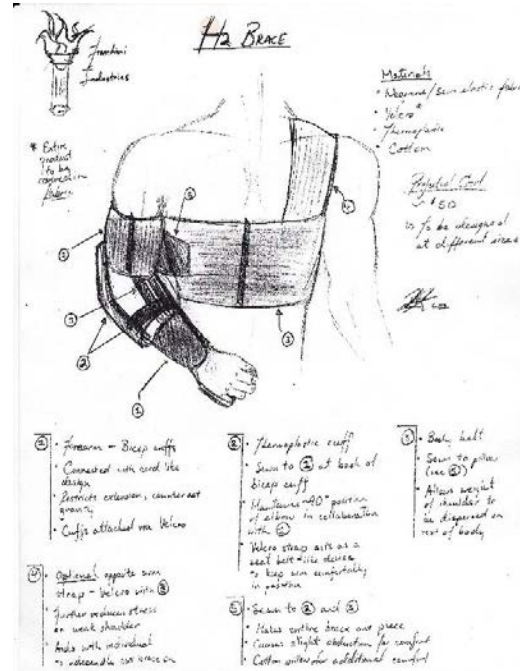 H2 BRACE
Industries
Materials
Velcro
Thermoplastic
Cotton
* Entire
product
to be
compression
fabric
Projected Cost
~ $50
To be designed
at different sizes
① • Forearm - Bicep cuffs
• Connected with cord like
design
• Restricts extension, counteract
gravity
• Cuffs attached via Velcro
② • Thermoplastic cuff
• Sewn to ① at back of
bicep cuff
• Maintains ~90° position
of elbow in collaboration
with ①
• Velcro strap acts as a
seat belt-like device
to keep arm comfortably
in position
③ • Body belt
• Sewn to pillow
• Allows weight
of shoulder to
be dispersed on
rest of body
④ • Optional opposite arm
strap - Velcro with ③
• Further reduces stress
on weak shoulder
• Aids with individual
⑤ • Sewn to ② and ③
• Makes entire brace one piece
• Causes slight abduction for comfort
• Cotton pillow for additional comfort